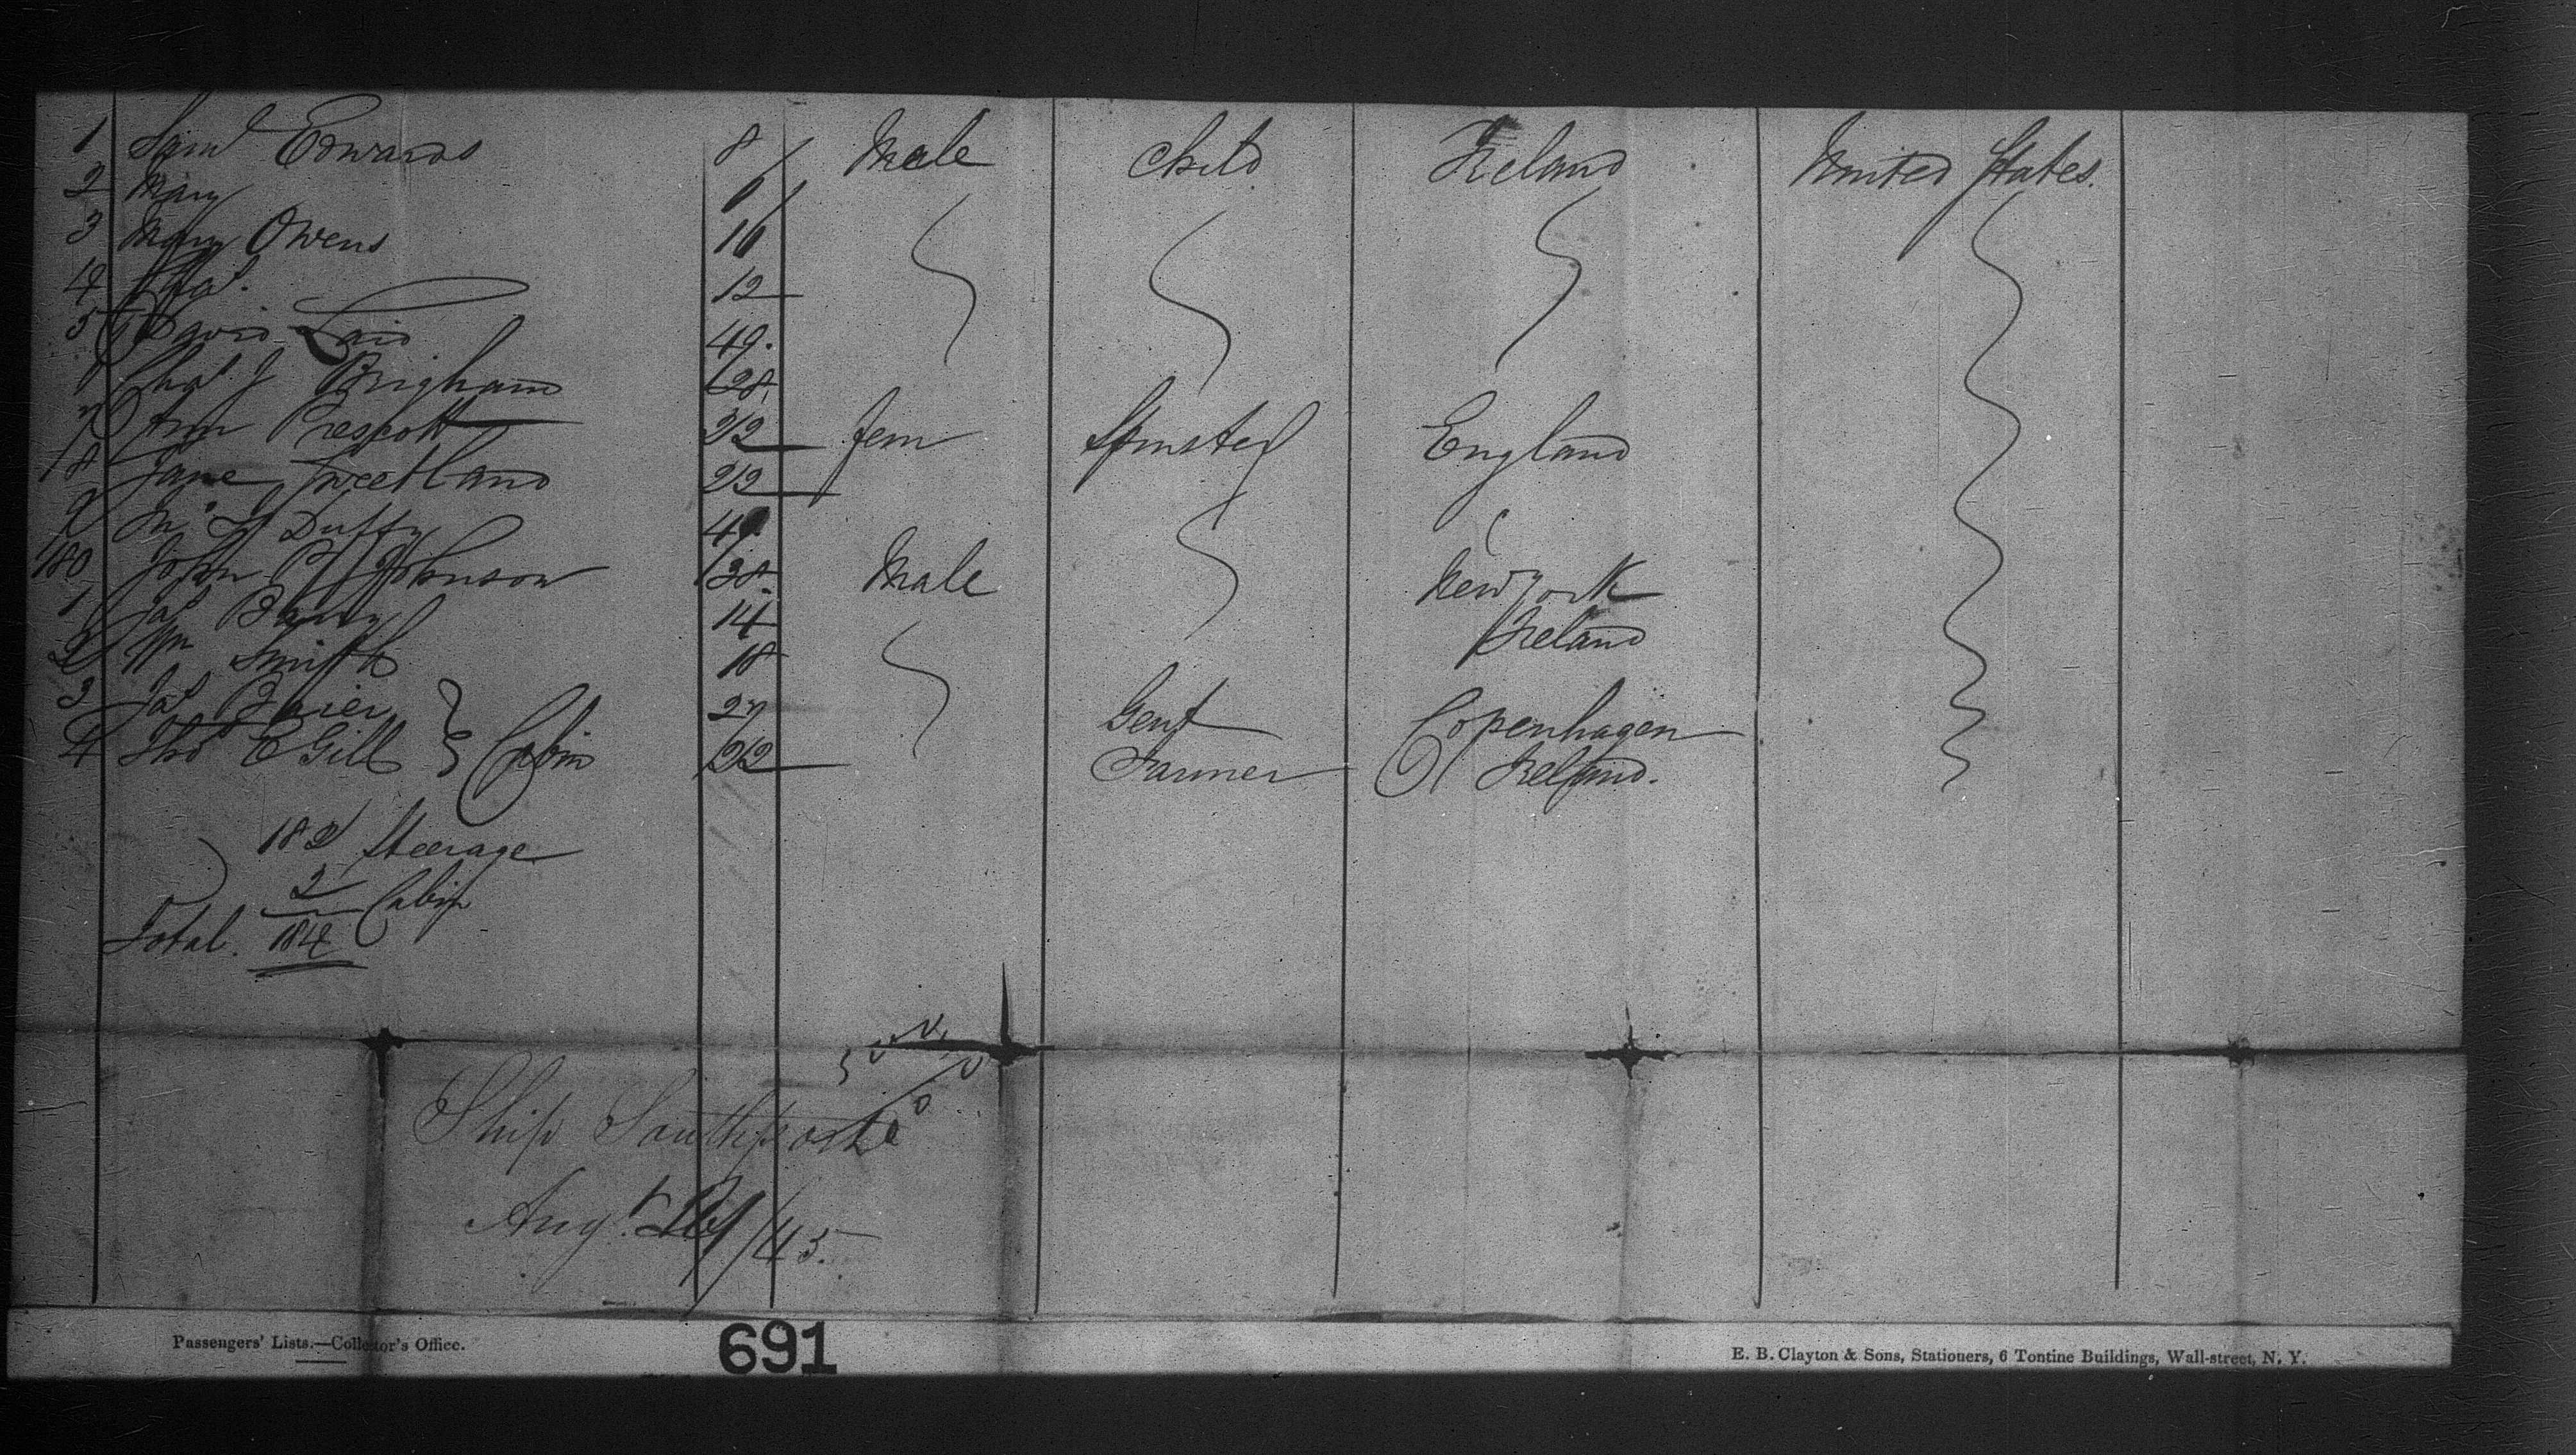 1 Saml Edwards 8 Male Child Ireland United States.
2 Mary 6
3 Mary Owens 16
4 Chas. 12
5 David Laird 49.
6 Chas. J Brigham 28.
7 Ann Prescott 22 fem Spinster England
18 Jane Sweetland 22
9 Duffy 49
180 John P Johnson 38. Male New York
1 Jas Barry 14 Ireland
2 Wm Smith 18
3 Jas 27 Gent Copenhagen
4 Thos E Gill } Cabin 22 Farmer Ireland.
182 Steerage
2 Cabin
Total. 184
Ship Southport
Augt. /45.
691
Passengers' Lists.—Collector's Office.
E. B. Clayton & Sons, Stationers, 6 Tontine Buildings, Wall-street, N. Y.